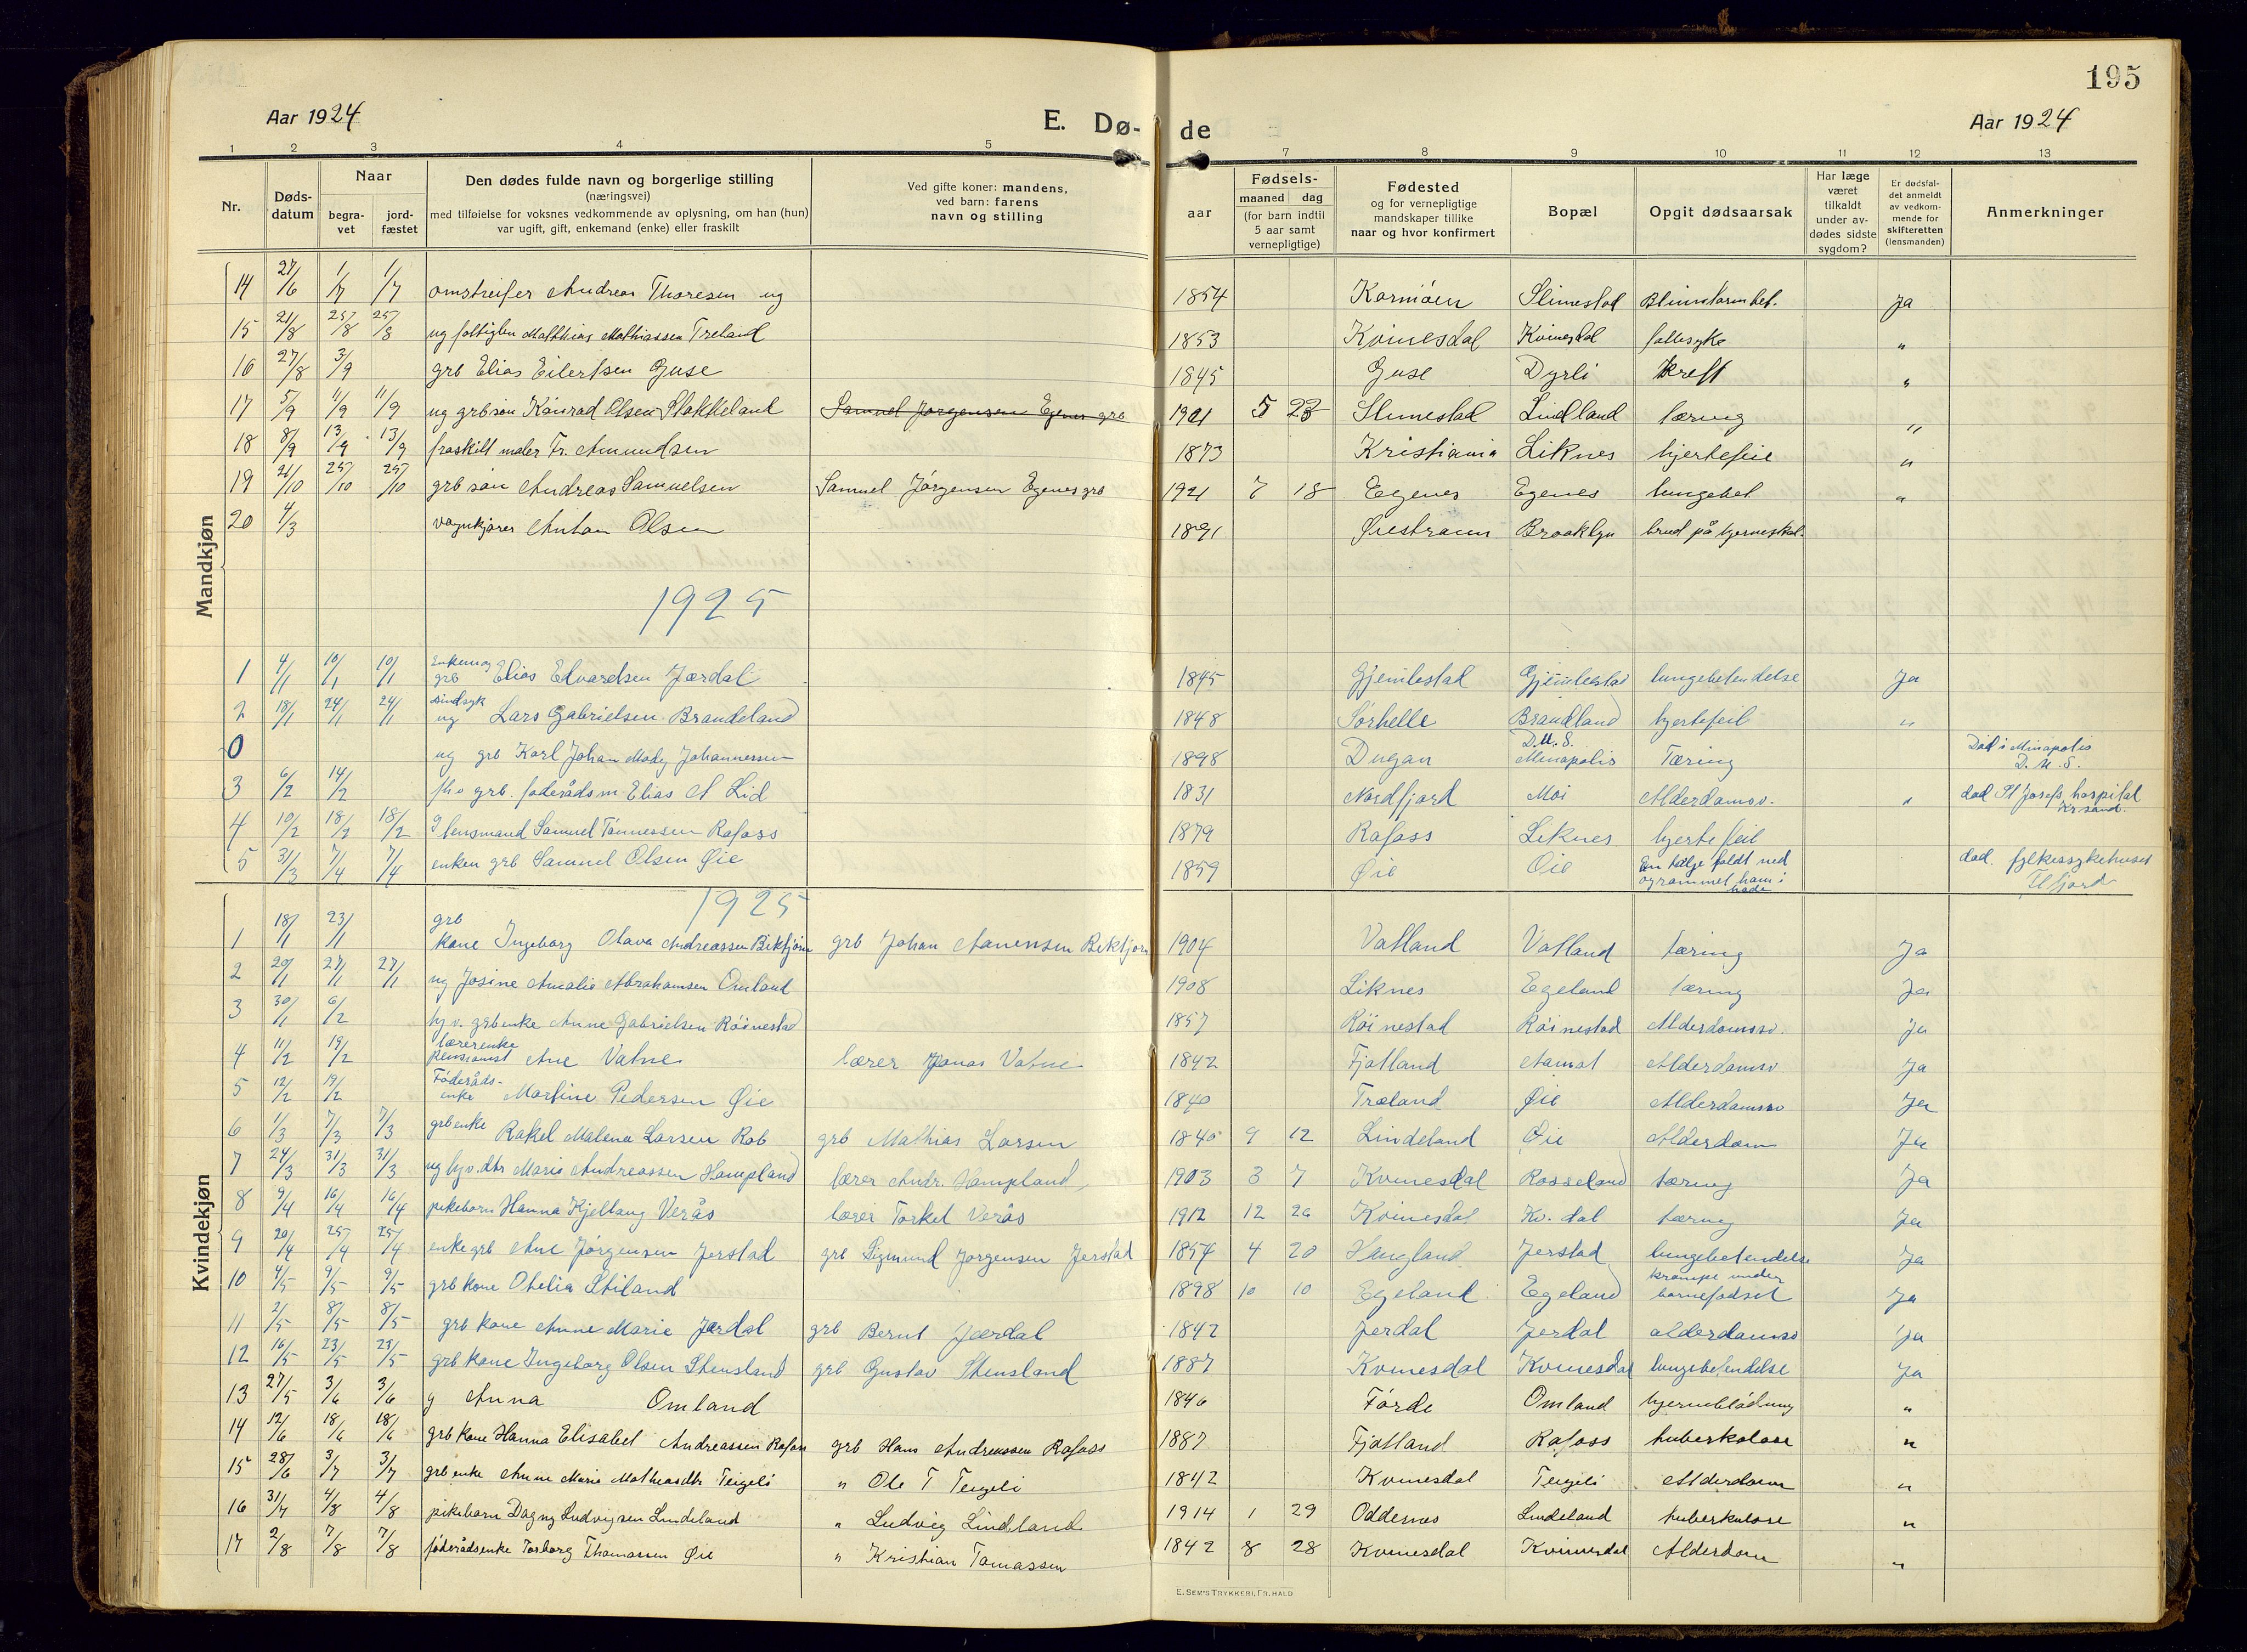 195
Aar 1924
E. Dø- de
Aar 1924
1 2 3 4 5 7 8 9 10 11 12 13
Nr.
Døds-
datum
Naar
begra-
vet
jord-
fæstet
Den dødes fulde navn og borgerlige stilling
(næringsvei)
med tilføielse for voksnes vedkommende av oplysning, om han (hun)
var ugift, gift, enkemand (enke) eller fraskilt
Ved gifte koner: mandens,
ved barn: farens
navn og stilling
aar
Fødsels-
maaned dag
(for barn indtil
5 aar samt
vernepligtige)
Fødested
og for vernepligtige
mandskaper tillike
naar og hvor konfirmert
Bopæl
Opgit dødsaarsak
Har læge
været
tilkaldt
under av-
dødes sidste
sygdom?
Er dødsfal-
det anmeldt
av vedkom-
mende for
skifteretten
(lensmanden)
Anmerkninger
Mandkjøn
14 27/6 1/7 1/7 omstreifer Andreas Thoresen ug 1854 Karmöen Slimestad Blindtarmbet. Ja
15 21/8 25/8 25/8 ug fattiglem Mathias Mathiassen Treland 1853 Kvinesdal Kvinesdal fallesyke "
16 27/8 3/9 grb Elias Eilertsen Guse 1845 Guse Dyrli Kreft "
17 5/9 11/9 11/9 ug grbsön Konrad Olsen Stakkeland Samuel Jørgensen Egenes grb 1901 5 23 Slimestad Lindland tæring "
18 8/9 13/9 13/9 fraskilt maler Fr. Amundsen 1873 Kristiania Liknes hjertefeil "
19 21/10 25/10 25/10 grb sön Andreas Samuelsen Samuel Jørgensen Egenes grb 1921 7 18 Egenes Egenes lungebet "
20 4/3 vognkjører Anton Olsen 1891 Øiestrann Brooklyn brud på hjerneskal.
1925
1 4/1 10/1 10/1 Enkem og grb Elias Edvardsen Jærdal 1845 Gjemlestad Gjemlestad lungebetendelse Ja
2 18/1 24/1 24/1 sindsyk ug Lars Gabrielsen Brandeland 1848 Sörhelle Brandland hjertefeil "
0 ug grb Karl Johan Mody Johannessen 1898 Dugan D.U.S. Minapolis Tæring Död i Minapolis D.U.S.
3 6/2 14/2 fhv grb. föderådsm Elias A Lid 1831 Nordfjord Moi Alderdomsv. " död St Josefs hospital Kr.sand.
4 10/2 18/2 18/2 g lensmand Samuel Tönnessen Rafoss 1879 Rafoss Liknes hjertefeil
5 31/3 7/4 7/4 enkem grb Samuel Olsen Øie 1859 Øie Øie En tølge faldt ned og rammet ham i hode död. fylkessykehuset Flfjord
Kvindekjøn
1925
1 18/1 23/1 grb kone Ingeborg Olava Andreassen Bektjörn grb Johan Aanensen Bektjörn 1904 Vatland Vatland tæring Ja
2 20/1 27/1 27/1 ug Josine Amalie Abrahamsen Omland 1908 Liknes Egeland tæring Ja
3 30/1 6/2 hjv. grbenke Anne Gabrielsen Röinestad 1857 Röinestad Röinestad Alderdomsv. Ja
4 11/2 19/2 lærerenke pensionist Ane Vatne lærer Jonas Vatne 1842 Fjotland Aamot Alderdomsv. Ja
5 12/2 19/2 Föderåds-enke Martine Pedersen Øie 1840 Træland Øie Alderdomsv Ja
6 1/3 7/3 7/3 grbenke Rakel Malena Larsen Rob grb Mathias Larsen 1840 9 12 Lindeland Øie Alderdom Ja
7 24/3 31/3 31/3 ug hjv. dtr Marie Andreassen Hampland lærer Andr. Hampland 1903 3 7 Kvinesdal Rosseland tæring Ja
8 9/4 16/4 16/4 pikebarn Hanna Kjellaug Verås lærer Torkel Verås 1912 12 26 Kvinesdal Kv. dal tæring Ja
9 20/4 25/4 25/4 enke grb Ane Jørgensen Jerstad grb Sigmund Jørgensen Jerstad 1854 4 20 Haugland Jerstad lungebetendelse Ja
10 4/5 9/5 9/5 grb kone Otelia Stiland 1898 10 10 Egeland Egeland krampe under barnefødsel Ja
11 2/5 8/5 8/5 grb kone Anne Marie Jerdal grb Bernt Jærdal 1842 Jerdal Jerdal alderdomsv Ja
12 16/5 23/5 23/5 grb kone Ingeborg Olsen Stensland grb Gustav Stensland 1887 Kvinesdal Kvinesdal lungebetendelse Ja
13 27/5 3/6 3/6 g Anna Omland 1846 Förde Omland hjerneblödning "
14 12/6 18/6 18/6 grb kone Hanna Elisabet Andreassen Rafoss grb Hans Andreassen Rafoss 1887 Fjotland Rafoss tuberkolose "
15 28/6 3/7 3/7 grb enke Anne Marie Mathiasdtr Teigeli " Ole T Teigeli 1842 Kvinesdal Teigeli Alderdom "
16 31/7 4/8 4/8 pikebarn Dagny Ludvigsen Lindeland " Ludvig Lindland 1914 1 29 Oddernes Lindeland tuberkulose "
17 2/8 7/8 7/8 föderådsenke Torborg Thomassen Øie " Kristian Tomassen 1842 8 28 Kvinesdal Kvinesdal Alderdom "
E. SEM'S TRYKKERI, FR.HALD